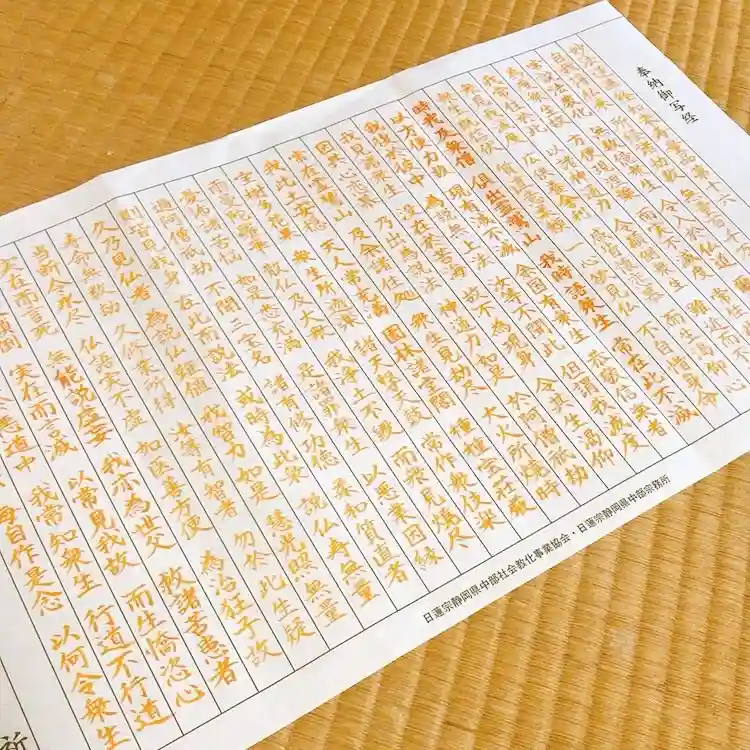 奉納御写経
妙法蓮華経如来寿量品第十六
自我得仏来 所経諸劫数 無量百千万
常説法教化 無数億衆生 令入於仏道
為度衆生故 方便現涅槃 而実不滅度 常住此説法
我常住於此 以諸神通力 令顛倒衆生 雖近而不見
衆見我滅度 広供養舎利 咸皆懐恋慕 而生渇仰心
衆生既信伏 質直意柔軟 一心欲見仏 不自惜身命
時我及衆僧 倶出霊鷲山 我時語衆生 常在此不滅
以方便力故 現有滅不滅 余国有衆生 恭敬信楽者
我復於彼中 為説無上法 汝等不聞此 但謂我滅度
我見諸衆生 没在於苦海 故不為現身 令其生渇仰
因其心恋慕 乃出為説法 神通力如是 於阿僧祇劫
常在霊鷲山 及余諸住処 衆生見劫尽 大火所焼時
我此土安穏 天人常充満 園林諸堂閣 種種宝荘厳
宝樹多花果 衆生所遊楽 諸天撃天鼓 常作衆伎楽
雨曼陀羅華 散仏及大衆 我浄土不毀 而衆見焼尽
憂怖諸苦悩 如是悉充満 是諸罪衆生 以悪業因縁
過阿僧祇劫 不聞三宝名 諸有修功徳 柔和質直者
則皆見我身 在此而説法 或時為此衆 説仏寿無量
久乃見仏者 為説仏難値 我智力如是 慧光照無量
寿命無数劫 久修業所得 汝等有智者 勿於此生疑
当断令永尽 仏語実不虚 如医善方便 為治狂子故
実在而言死 無能説虚妄 我亦為世父 救諸苦患者
顛倒 実在而言滅 以常見我故 而生憍恣心
悪道中 我常知衆生 行道不行道
毎自作是念 以何令衆生
祈
日蓮宗静岡県中部社会教化事業協会・日蓮宗静岡県中部宗務所